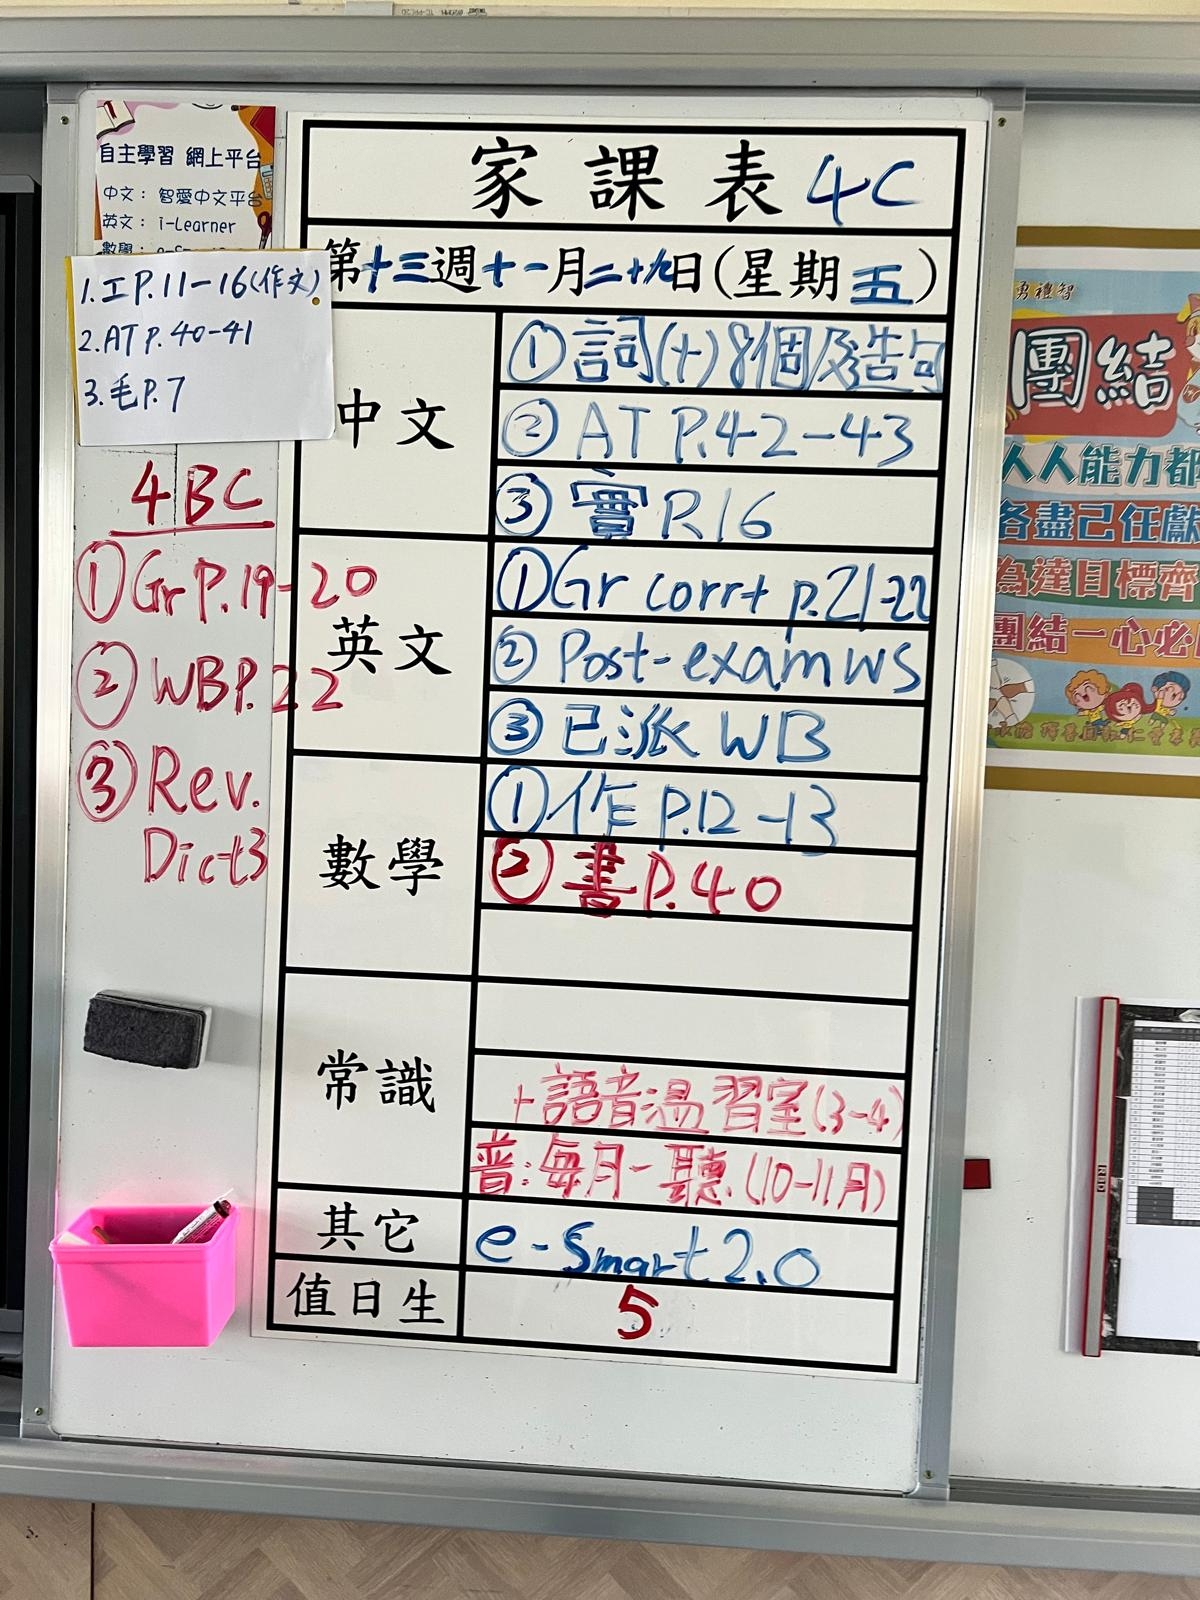 自主學習 網上平台
中文： 智愛中文平台
英文： i-Learner
數學：
1.工P.11-16(作文)
2.AT P.40-41
3.毛P.7
4BC
①Gr P.19-20
②WB P.22
③Rev.
Dict3
家課表 4C
第十三週十一月二十九日(星期五)
中文
①詞(十)8個及造句
②AT P.42-43
③實P.16
英文
①Gr corr+ p.21-22
②Post-exam WS
③已派WB
數學
①作P.12-13
②書P.40
常識
+語音溫習室(3-4)
普:每月一聽.(10-11月)
其它
e-Smart 2.0
值日生
5
勇禮智
團結
人人能力都
各盡己任獻
為達目標齊
團結一心必